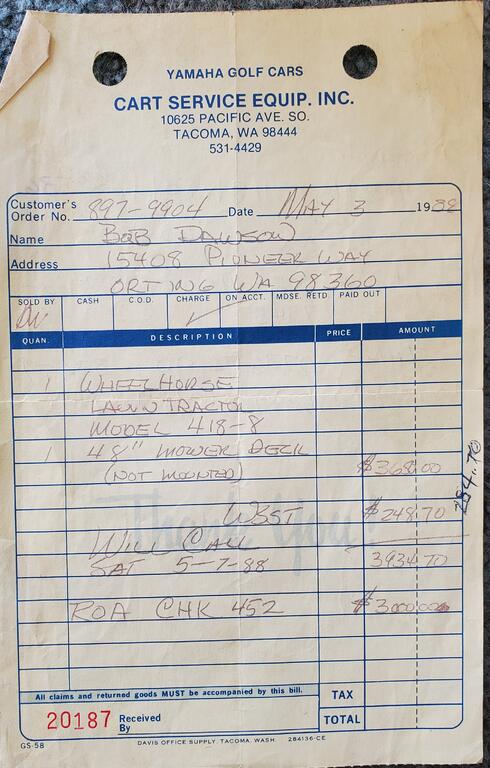 YAMAHA GOLF CARS
CART SERVICE EQUIP. INC.
10625 PACIFIC AVE. SO.
TACOMA, WA 98444
531-4429
Customer's Order No. 897-9904 Date MAY 3 1988
Name BOB DAWSON
Address 15408 PIONEER WAY
ORTING WA 98360
SOLD BY CASH C.O.D. CHARGE ON ACCT. MDSE. RETD PAID OUT
QUAN. DESCRIPTION PRICE AMOUNT
1 WHEELHORSE
LAWN TRACTOR
MODEL 418-8
1 48" MOWER DECK
(NOT MOUNTED)
WSST $248.70
284.70
Thank You
WILL CALL 3934 70
SAT 5-7-88
ROA CHK 452 $3000.00
All claims and returned goods MUST be accompanied by this bill. TAX
20187 Received By TOTAL
GS-58 DAVIS OFFICE SUPPLY, TACOMA, WASH. 284136-CE